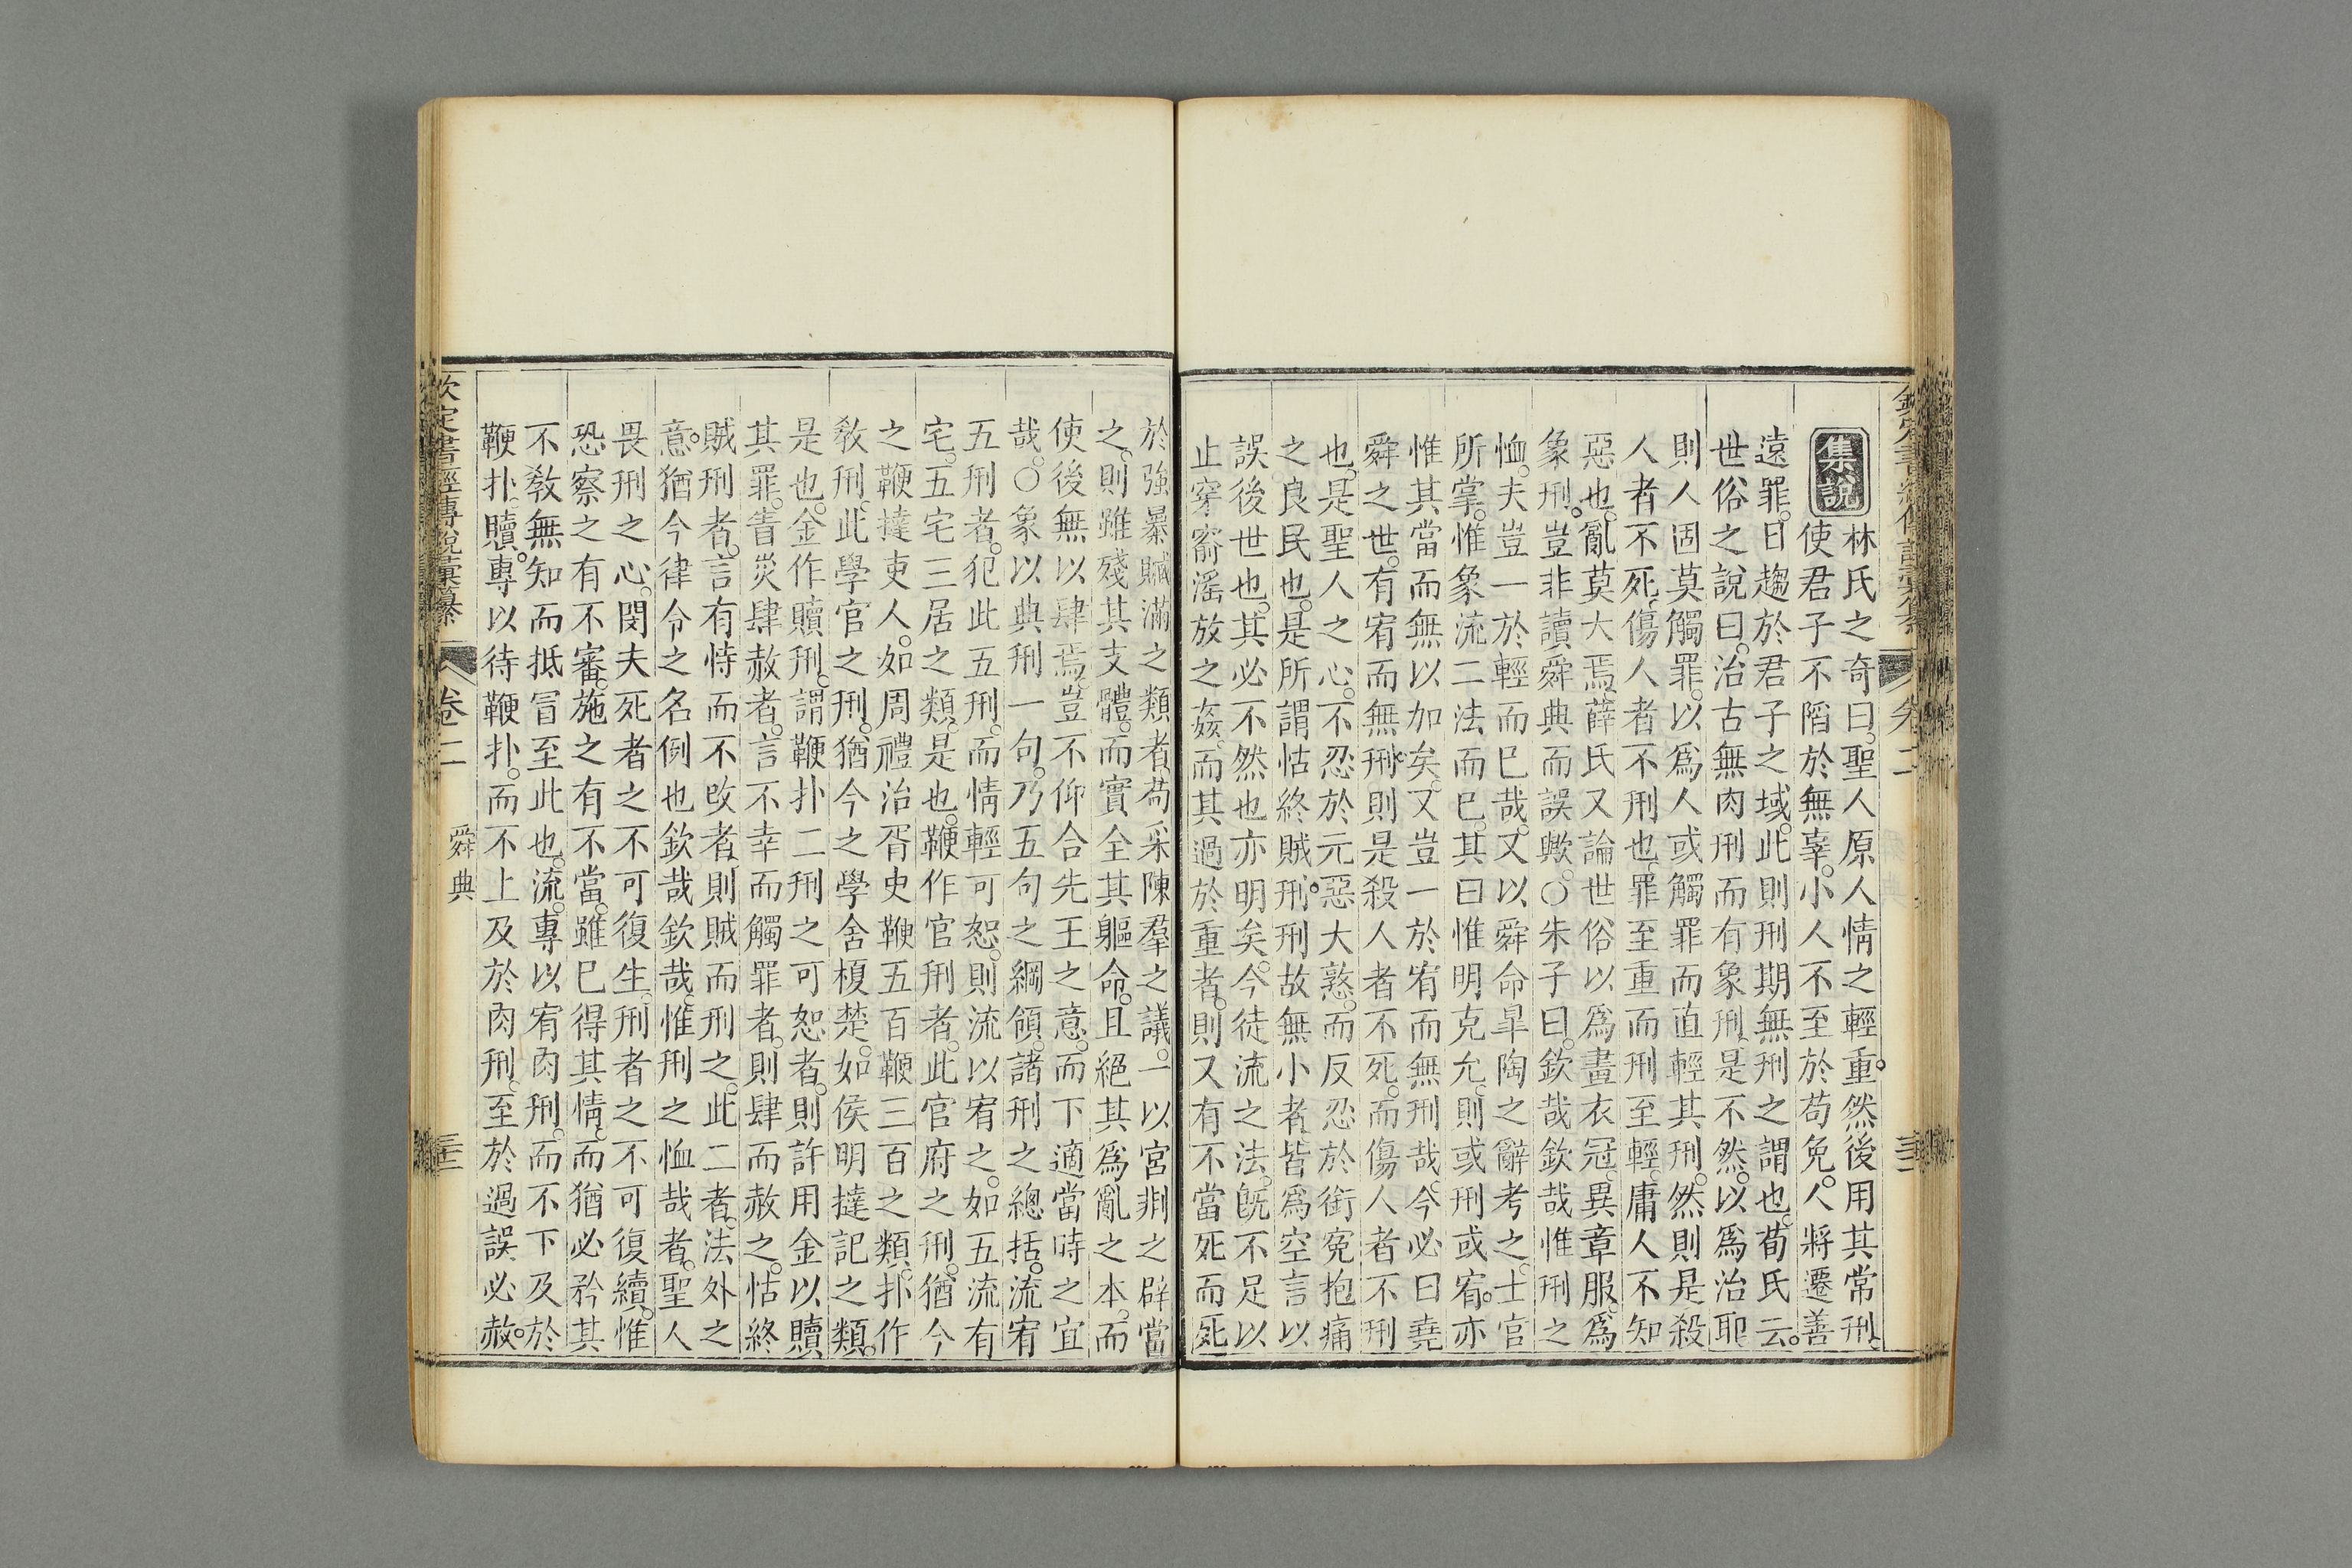 集說
林氏之奇曰聖人原人情之輕重然後用其常刑
使君子不陷於無辜小人不至於苟免人將遷善
遠罪日趨於君子之域此則刑期無刑之謂也荀氏云
世俗之說曰治古無肉刑而有象刑是不然以為治耶
則人固莫觸罪以為人或觸罪而直輕其刑然則是殺
人者不死傷人者不刑也罪至重而刑至輕庸人不知
惡也亂莫大焉薛氏又論世俗以為畫衣冠異章服為
象刑豈非讀舜典而誤歟○朱子曰欽哉欽哉惟刑之
恤夫豈一於輕而已哉又以舜命皐陶之辭考之士官
所掌惟象流二法而已其曰惟明克允則或刑或宥亦
惟其當而無以加矣又豈一於宥而無刑哉今必曰堯
舜之世有宥而無刑則是殺人者不死而傷人者不刑
也是聖人之心不忍於元惡大憝而反忍於銜寃抱痛
之良民也是所謂怙終賊刑刑故無小者皆為空言以
誤後世也其必不然也亦明矣今徒流之法旣不足以
止穿窬滛放之姦而其過於重者則又有不當死而死
於強暴贓滿之類者苟采陳羣之議一以宮剕之辟當
之則雖殘其支體而實全其軀命且絕其為亂之本而
使後無以肆焉豈不仰合先王之意而下適當時之宜
哉○象以典刑一句乃五句之綱領諸刑之總括流宥
五刑者犯此五刑而情輕可恕則流以宥之如五流有
宅五宅三居之類是也鞭作官刑者此官府之刑猶今
之鞭撻吏人如周禮治胥史鞭五百鞭三百之類扑作
敎刑此學官之刑猶今之學舍榎楚如侯明撻記之類
是也金作贖刑謂鞭扑二刑之可恕者則許用金以贖
其罪眚災肆赦者言不幸而觸罪者則肆而赦之怙終
賊刑者言有恃而不改者則賊而刑之此二者法外之
意猶今律令之名例也欽哉欽哉惟刑之恤哉者聖人
畏刑之心閔夫死者之不可復生刑者之不可復續惟
恐察之有不審施之有不當雖已得其情而猶必矜其
不敎無知而抵冒至此也流專以宥肉刑而不下及於
鞭扑贖專以待鞭扑而不上及於肉刑至於過誤必赦
欽定書經傳說彙纂 卷二 舜典